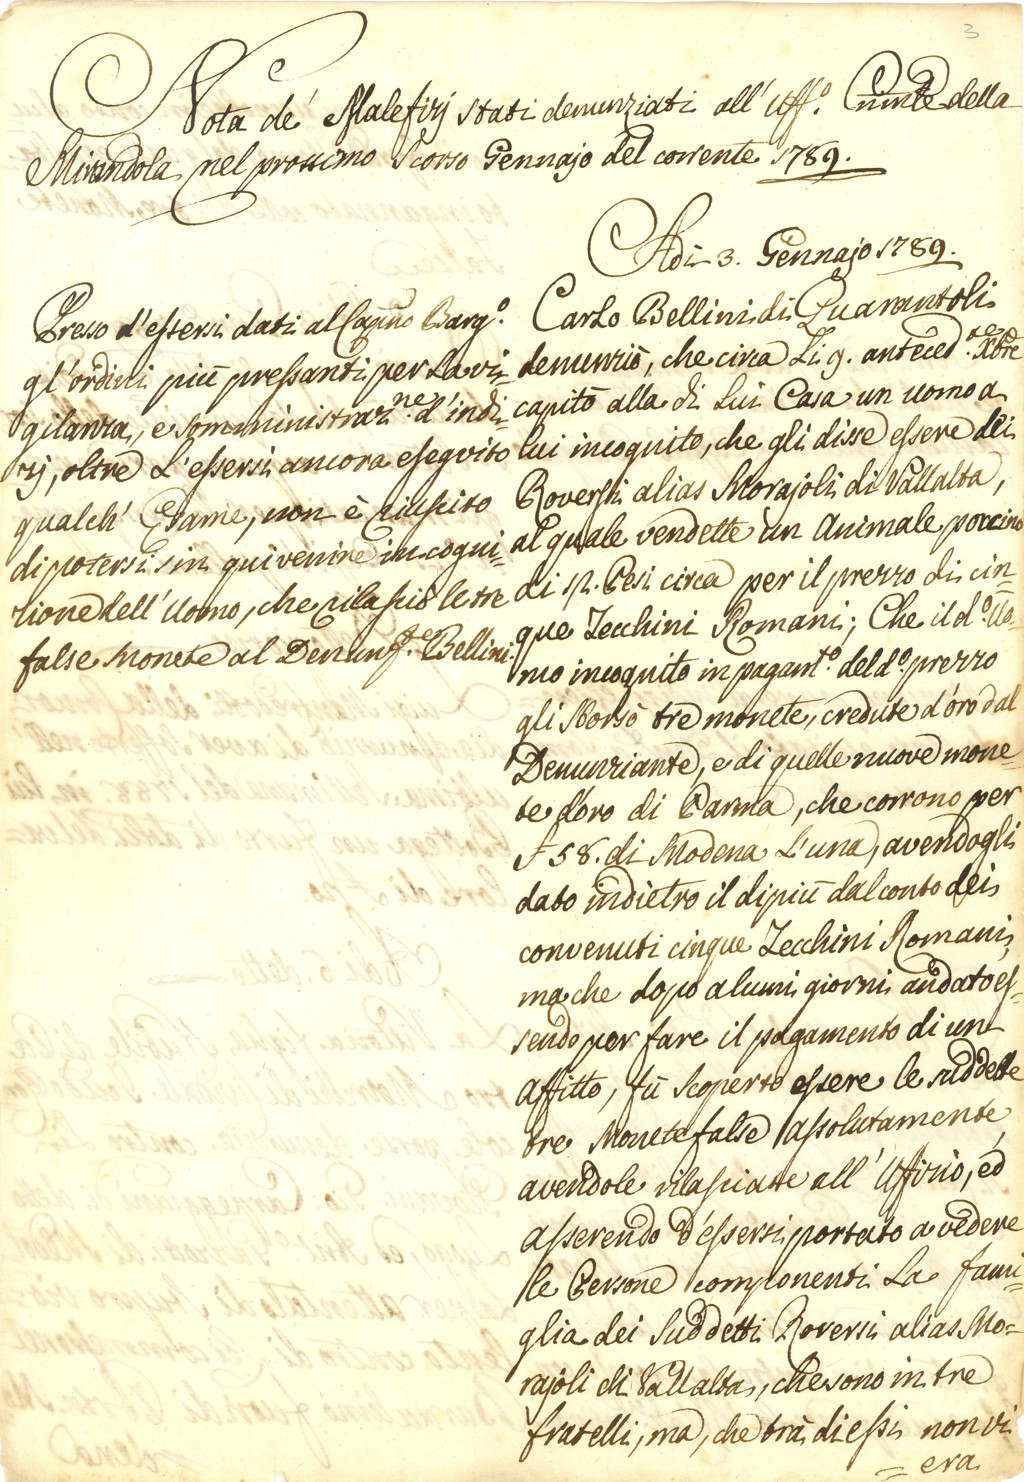 3
Nota de' Malefizj stati denunziati all' Uff.º Crimle della
Mirandola nel prossimo scorso Gennajo del corrente 1789.
Adi 3. Gennajo 1789.
Preso d'essersi dati al Barg.º
gl'ordini più pressanti per la vi=
gilanza, e somministraz.ne d'indi=
zj, oltre l'essersi ancora eseguito
qualch' Esame, non è riuscito
di potersi sin qui venire in cogni=
zione dell' Uomo, che rilasciò le tre
false monete al Denunz.te Bellini.
Carlo Bellini di Quarantoli
denunziò, che circa li 9. anteced.te Xbre
capitò alla di lui Casa un uomo a
lui incognito, che gli disse essere dei
Roversi alias Morajoli di Vallalta,
al quale vendette un Animale porcino
di Pesi circa per il prezzo di cin=
que Zecchini Romani; Che il d.º Uo=
mo incognito in pagam.tº del d.º prezzo
gli sborsò tre monete, credute d'oro dal
Denunziante, e di quelle nuove mone=
te d'oro di Parma, che corrono per
£ 58. di Modena l'una, avendogli
dato indietro il di più dal conto dei
convenuti cinque Zecchini Romani,
ma che dopo alcuni giorni andato es=
sendo per fare il pagamento di un
affitto, fù scoperto essere le suddette
tre monete false assolutamente,
avendole rilasciate all' Uffizio, ed
asserendo d'essersi portato a vedere
le Persone componenti la fami=
glia dei suddetti Roversi alias Mo=
rajoli di Vallalta, che sono in tre
fratelli, ma, che trà di essi non vi
= era